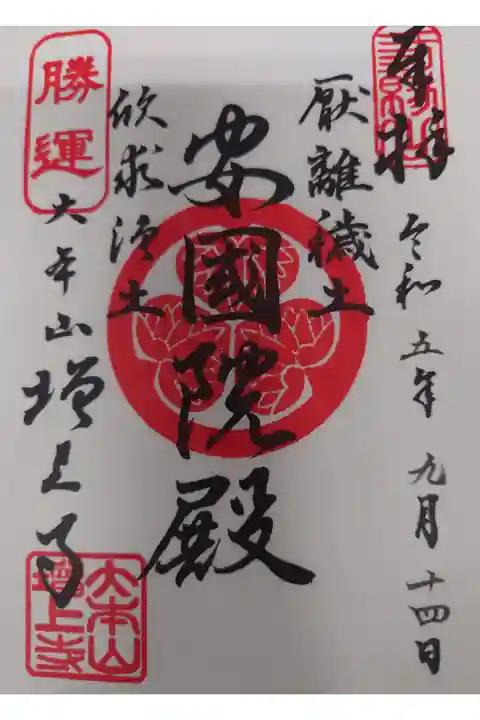 奉拝
令和五年九月十四日
厭離穢土
安國院殿
欣求浄土
勝運
大本山増上寺
大本山
増上寺